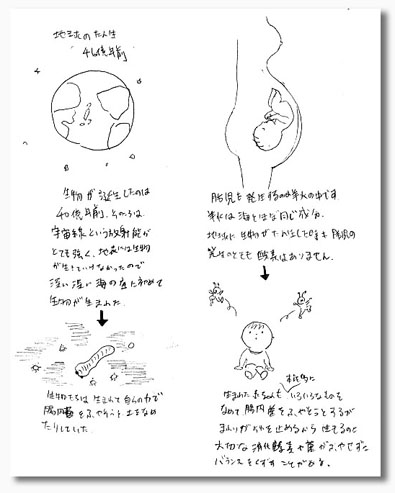 地球のたん生
46億年前
生物が誕生したのは
40億年前、そのころは
宇宙線という放射能が
とても強く、地表には生物
が生きていけなかったので
深い深い海の底に初めて
生物が生まれた
生物たちは生まれて自らの力で
腸内菌をふやそうと土をなめ
たりしていた。
胎児も発生するのは羊水の中です。
羊水は海とほぼ同じ成分。
地球に生物がたん生した時も胎児の
発生のときも酸素はありません。
生まれた赤ちゃんもいろいろなものを
なめて腸内菌をふやそうとするが
まわりがそれを止めるから
大切な消化酵素や菌がふやせずに
バランスをくずすことがある。